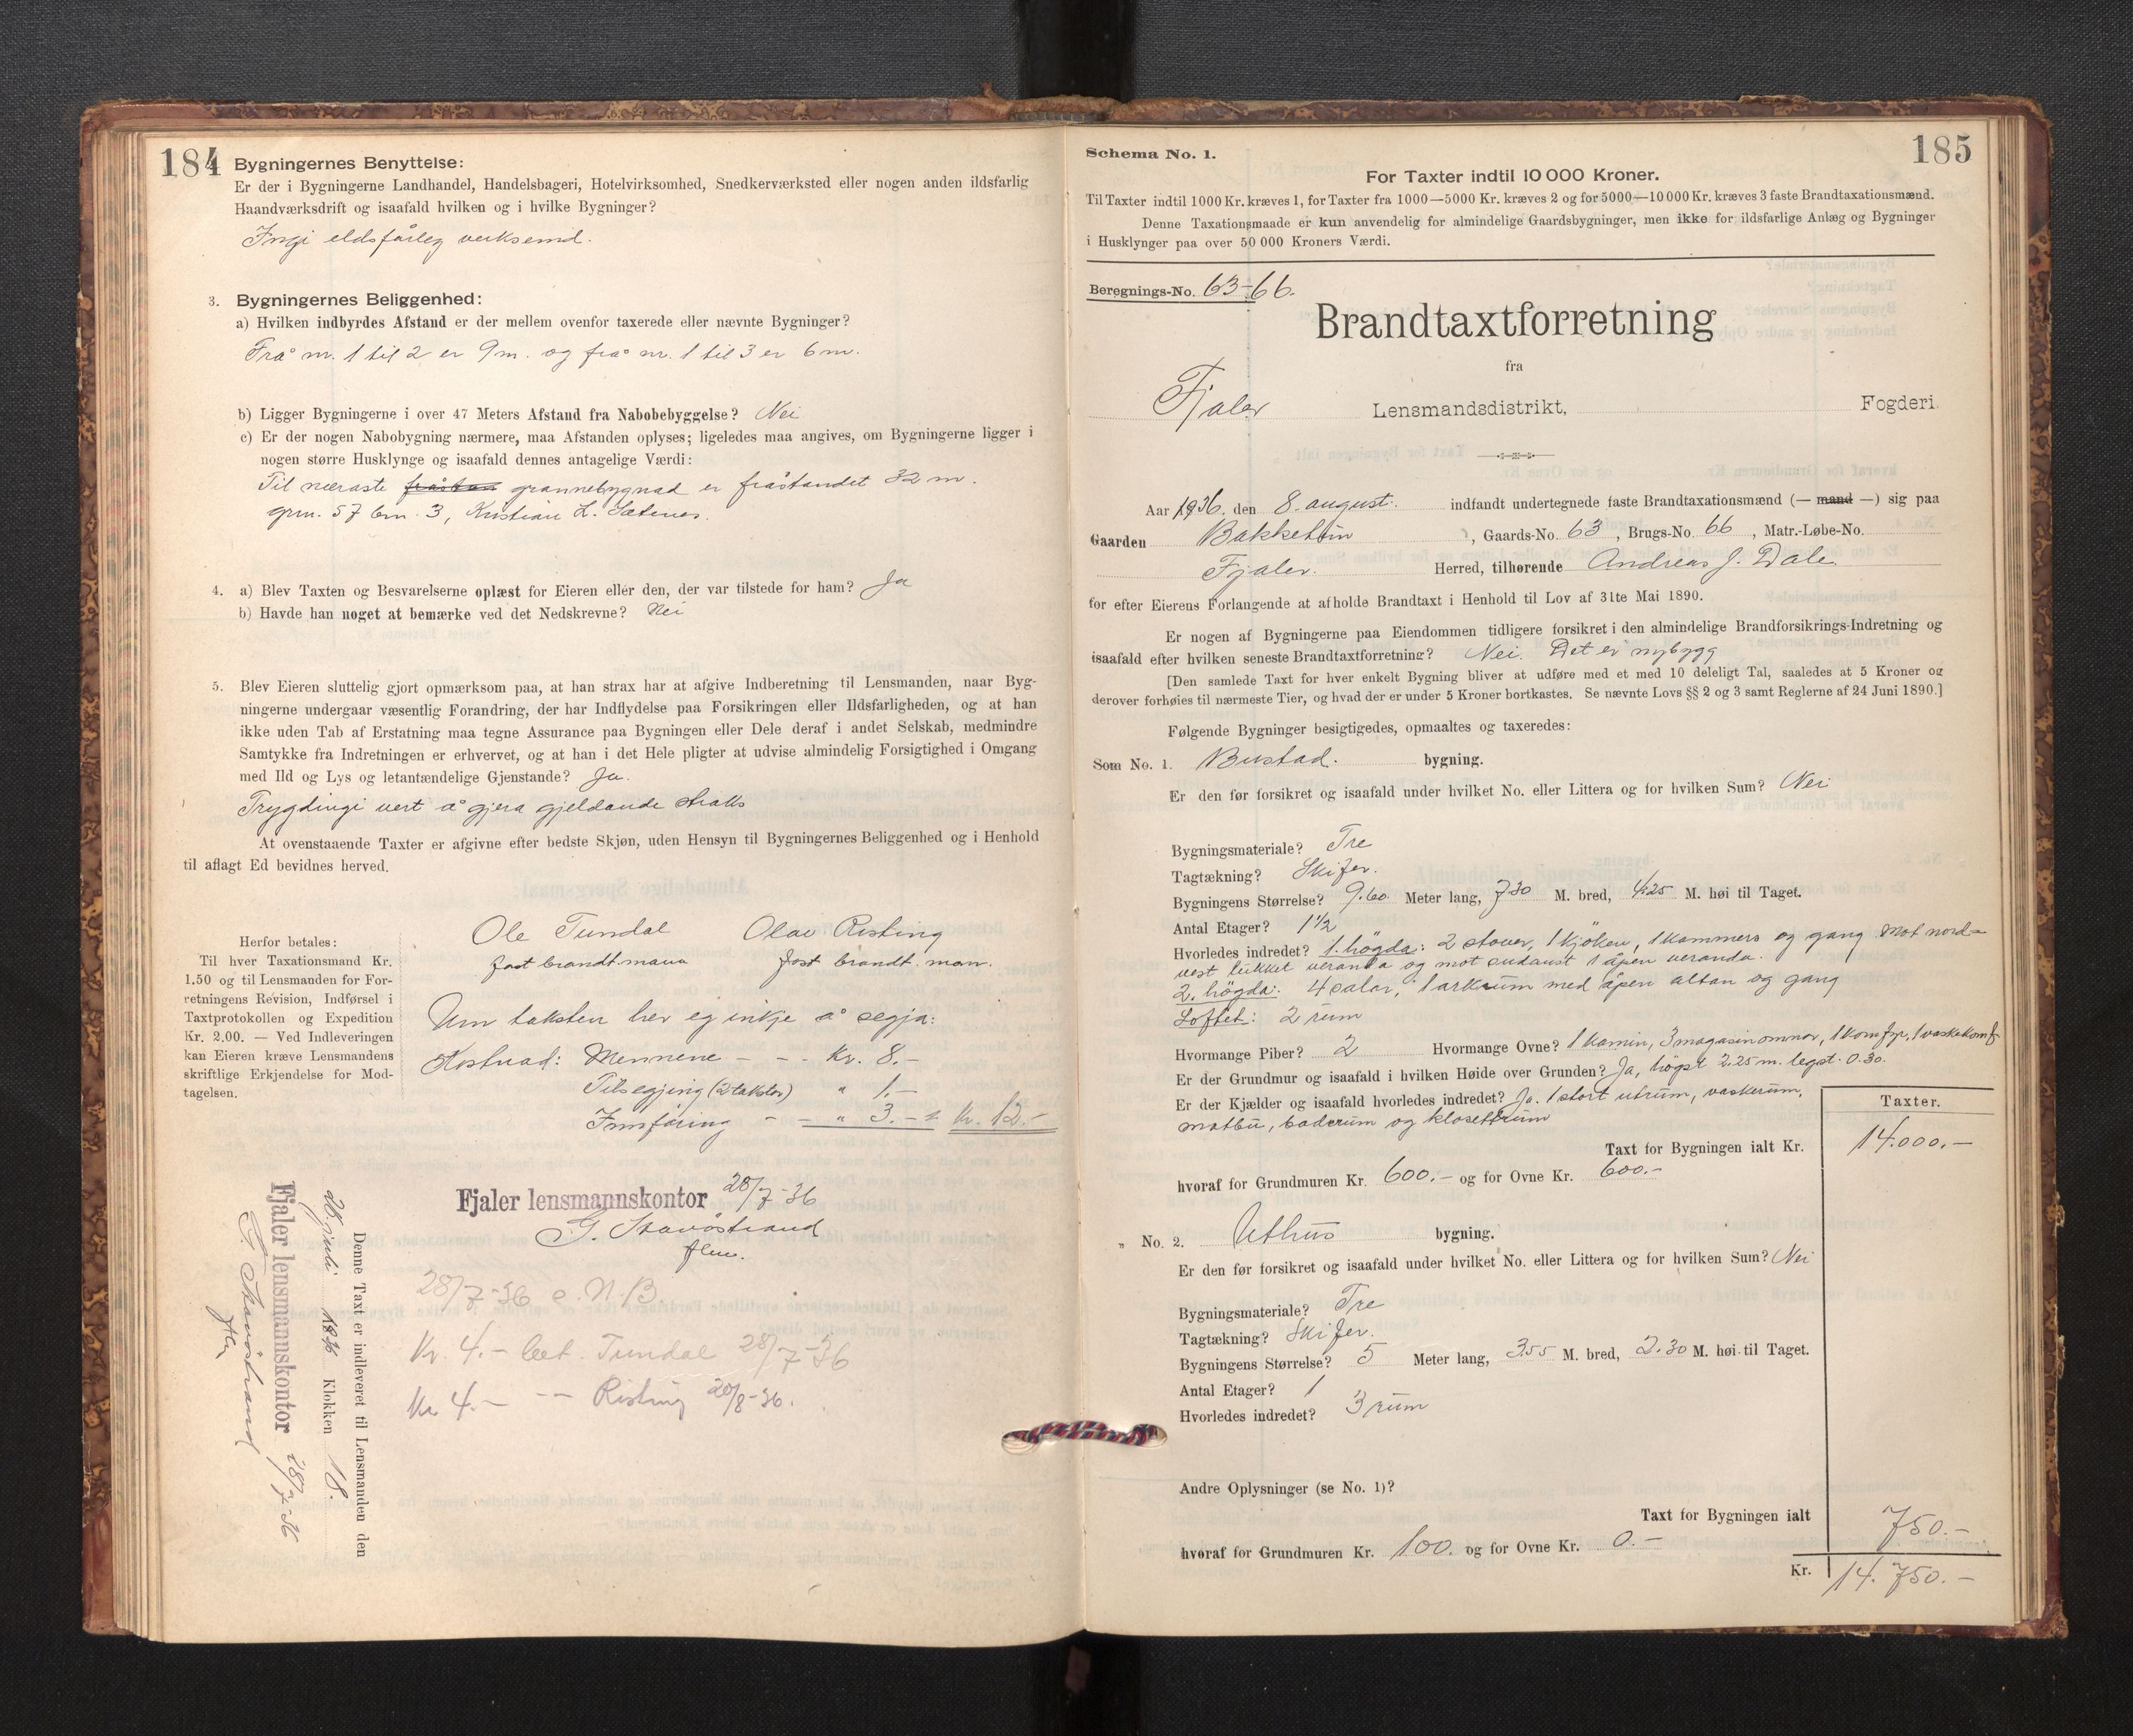 184
Bygningernes Benyttelse:
Er der i Bygningerne Landhandel, Handelsbageri, Hotelvirksomhed, Snedkerværksted eller nogen anden ildsfarlig
Haandværksdrift og isaafald hvilken og i hvilke Bygninger?
Ingi eldsfårleg verksemd.
3. Bygningernes Beliggenhed:
a) Hvilken indbyrdes Afstand er der mellem ovenfor taxerede eller nævnte Bygninger?
Frå nr. 1 til 2 er 9 m. og frå nr. 1 til 3 er 6 m.
b) Ligger Bygningerne i over 47 Meters Afstand fra Nabobebyggelse? Nei
c) Er der nogen Nabobygning nærmere, maa Afstanden oplyses; ligeledes maa angives, om Bygningerne ligger i
nogen større Husklynge og isaafald dennes antagelige Værdi:
Til næraste grannebygnad er fråstandet 32 m.
grn. 57 bn. 3, Kristian L. Sætenes.
4. a) Blev Taxten og Besvarelserne oplæst for Eieren eller den, der var tilstede for ham? Ja
b) Havde han noget at bemærke ved det Nedskrevne? Nei
5. Blev Eieren sluttelig gjort opmærksom paa, at han strax har at afgive Indberetning til Lensmanden, naar Byg-
ningerne undergaar væsentlig Forandring, der har Indflydelse paa Forsikringen eller Ildsfarligheden, og at han
ikke uden Tab af Erstatning maa tegne Assurance paa Bygningen eller Dele deraf i andet Selskab, medmindre
Samtykke fra Indretningen er erhvervet, og at han i det Hele pligter at udvise almindelig Forsigtighed i Omgang
med Ild og Lys og letantændelige Gjenstande? Ja.
Trygdingi vert å gjera gjeldande straks
At ovenstaaende Taxter er afgivne efter bedste Skjøn, uden Hensyn til Bygningernes Beliggenhed og i Henhold
til aflagt Ed bevidnes herved.
Ole Tundal Olav Risting
fast brandt.mann fast brandt.man.
Herfor betales:
Til hver Taxationsmand Kr.
1.50 og til Lensmanden for For-
retningens Revision, Indførsel i
Taxtprotokollen og Expedition
Kr. 2.00. — Ved Indleveringen
kan Eieren kræve Lensmandens
skriftlige Erkjendelse for Mod-
tagelsen.
Um taksten hev eg inkje å segja:
Kostnad: Mennene - - - Kr. 8.-
Tilsegjing (2 takster) " 1.-
Innføring - - " 3.- = kr. 12.-
Fjaler lensmannskontor 28/7-36
G. Stavöstrand
flm.
28/7-36 e. N.B.
Kr. 4.- bet. Tundal 28/7-36
Kr 4.- -- Risting 20/8-36.
Denne Taxt er indleveret til Lensmanden den
28. juli 1936 Klokken 18.
Fjaler lensmannskontor 28/7-36
G. Stavöstrand
flm
185
Schema No. 1.
For Taxter indtil 10 000 Kroner.
Til Taxter indtil 1000 Kr. kræves 1, for Taxter fra 1000—5000 Kr. kræves 2 og for 5000—10 000 Kr. kræves 3 faste Brandtaxationsmænd.
Denne Taxationsmaade er kun anvendelig for almindelige Gaardsbygninger, men ikke for ildsfarlige Anlæg og Bygninger
i Husklynger paa over 50 000 Kroners Værdi.
Beregnings-No. 63-66.
Brandtaxtforretning
fra
Fjaler Lensmandsdistrikt, Fogderi.
Aar 1936. den 8. august. indfandt undertegnede faste Brandtaxationsmænd (— mand —) sig paa
Gaarden Bakketun, Gaards-No. 63, Brugs-No. 66, Matr.-Løbe-No.
Fjaler. Herred, tilhørende Andreas J. Dale.
for efter Eierens Forlangende at afholde Brandtaxt i Henhold til Lov af 31te Mai 1890.
Er nogen af Bygningerne paa Eiendommen tidligere forsikret i den almindelige Brandforsikrings-Indretning og
isaafald efter hvilken seneste Brandtaxtforretning? Nei. Det er nybygg
[Den samlede Taxt for hver enkelt Bygning bliver at udføre med et med 10 deleligt Tal, saaledes at 5 Kroner og
derover forhøies til nærmeste Tier, og hvad der er under 5 Kroner bortkastes. Se nævnte Lovs §§ 2 og 3 samt Reglerne af 24 Juni 1890.]
Følgende Bygninger besigtigedes, opmaaltes og taxeredes:
Som No. 1. Bustad. bygning.
Er den før forsikret og isaafald under hvilket No. eller Littera og for hvilken Sum? Nei
Bygningsmateriale? Tre
Tagtækning? Skifer.
Bygningens Størrelse? 9.60 Meter lang, 7.30 M. bred, 4.25 M. høi til Taget.
Antal Etager? 1½
Hvorledes indredet? 1. högda: 2 stover, 1 kjöken, 1 kammers og gang mot nord-
vest lukket veranda og mot sudaust 1 åpen veranda.
2. högda: 4 salar, 1 arkrum med åpen altan og gang
Loftet: 2 rum
Hvormange Piber? 2 Hvormange Ovne? 1 kamin, 3 magasinomnar, 1 komfyr, 1 vaskekomf.
Er der Grundmur og isaafald i hvilken Høide over Grunden? Ja, högst 2.25 m. legst. 0.30.
Er der Kjælder og isaafald hvorledes indredet? Ja. 1 stort utrum, vaskerum,
matbu, baderum og klosettrum
Taxter.
Taxt for Bygningen ialt Kr. 14.000.-
hvoraf for Grundmuren Kr. 600.- og for Ovne Kr. 600.-
" No. 2. Uthus bygning.
Er den før forsikret og isaafald under hvilket No. eller Littera og for hvilken Sum? Nei
Bygningsmateriale? Tre
Tagtækning? Skifer.
Bygningens Størrelse? 5 Meter lang, 3.55 M. bred, 2.30 M. høi til Taget.
Antal Etager? 1
Hvorledes indredet? 3 rum
Andre Oplysninger (se No. 1)?
Taxt for Bygningen ialt 750.-
hvoraf for Grundmuren Kr. 100. og for Ovne Kr. 0.-
Kr. 14.750.-